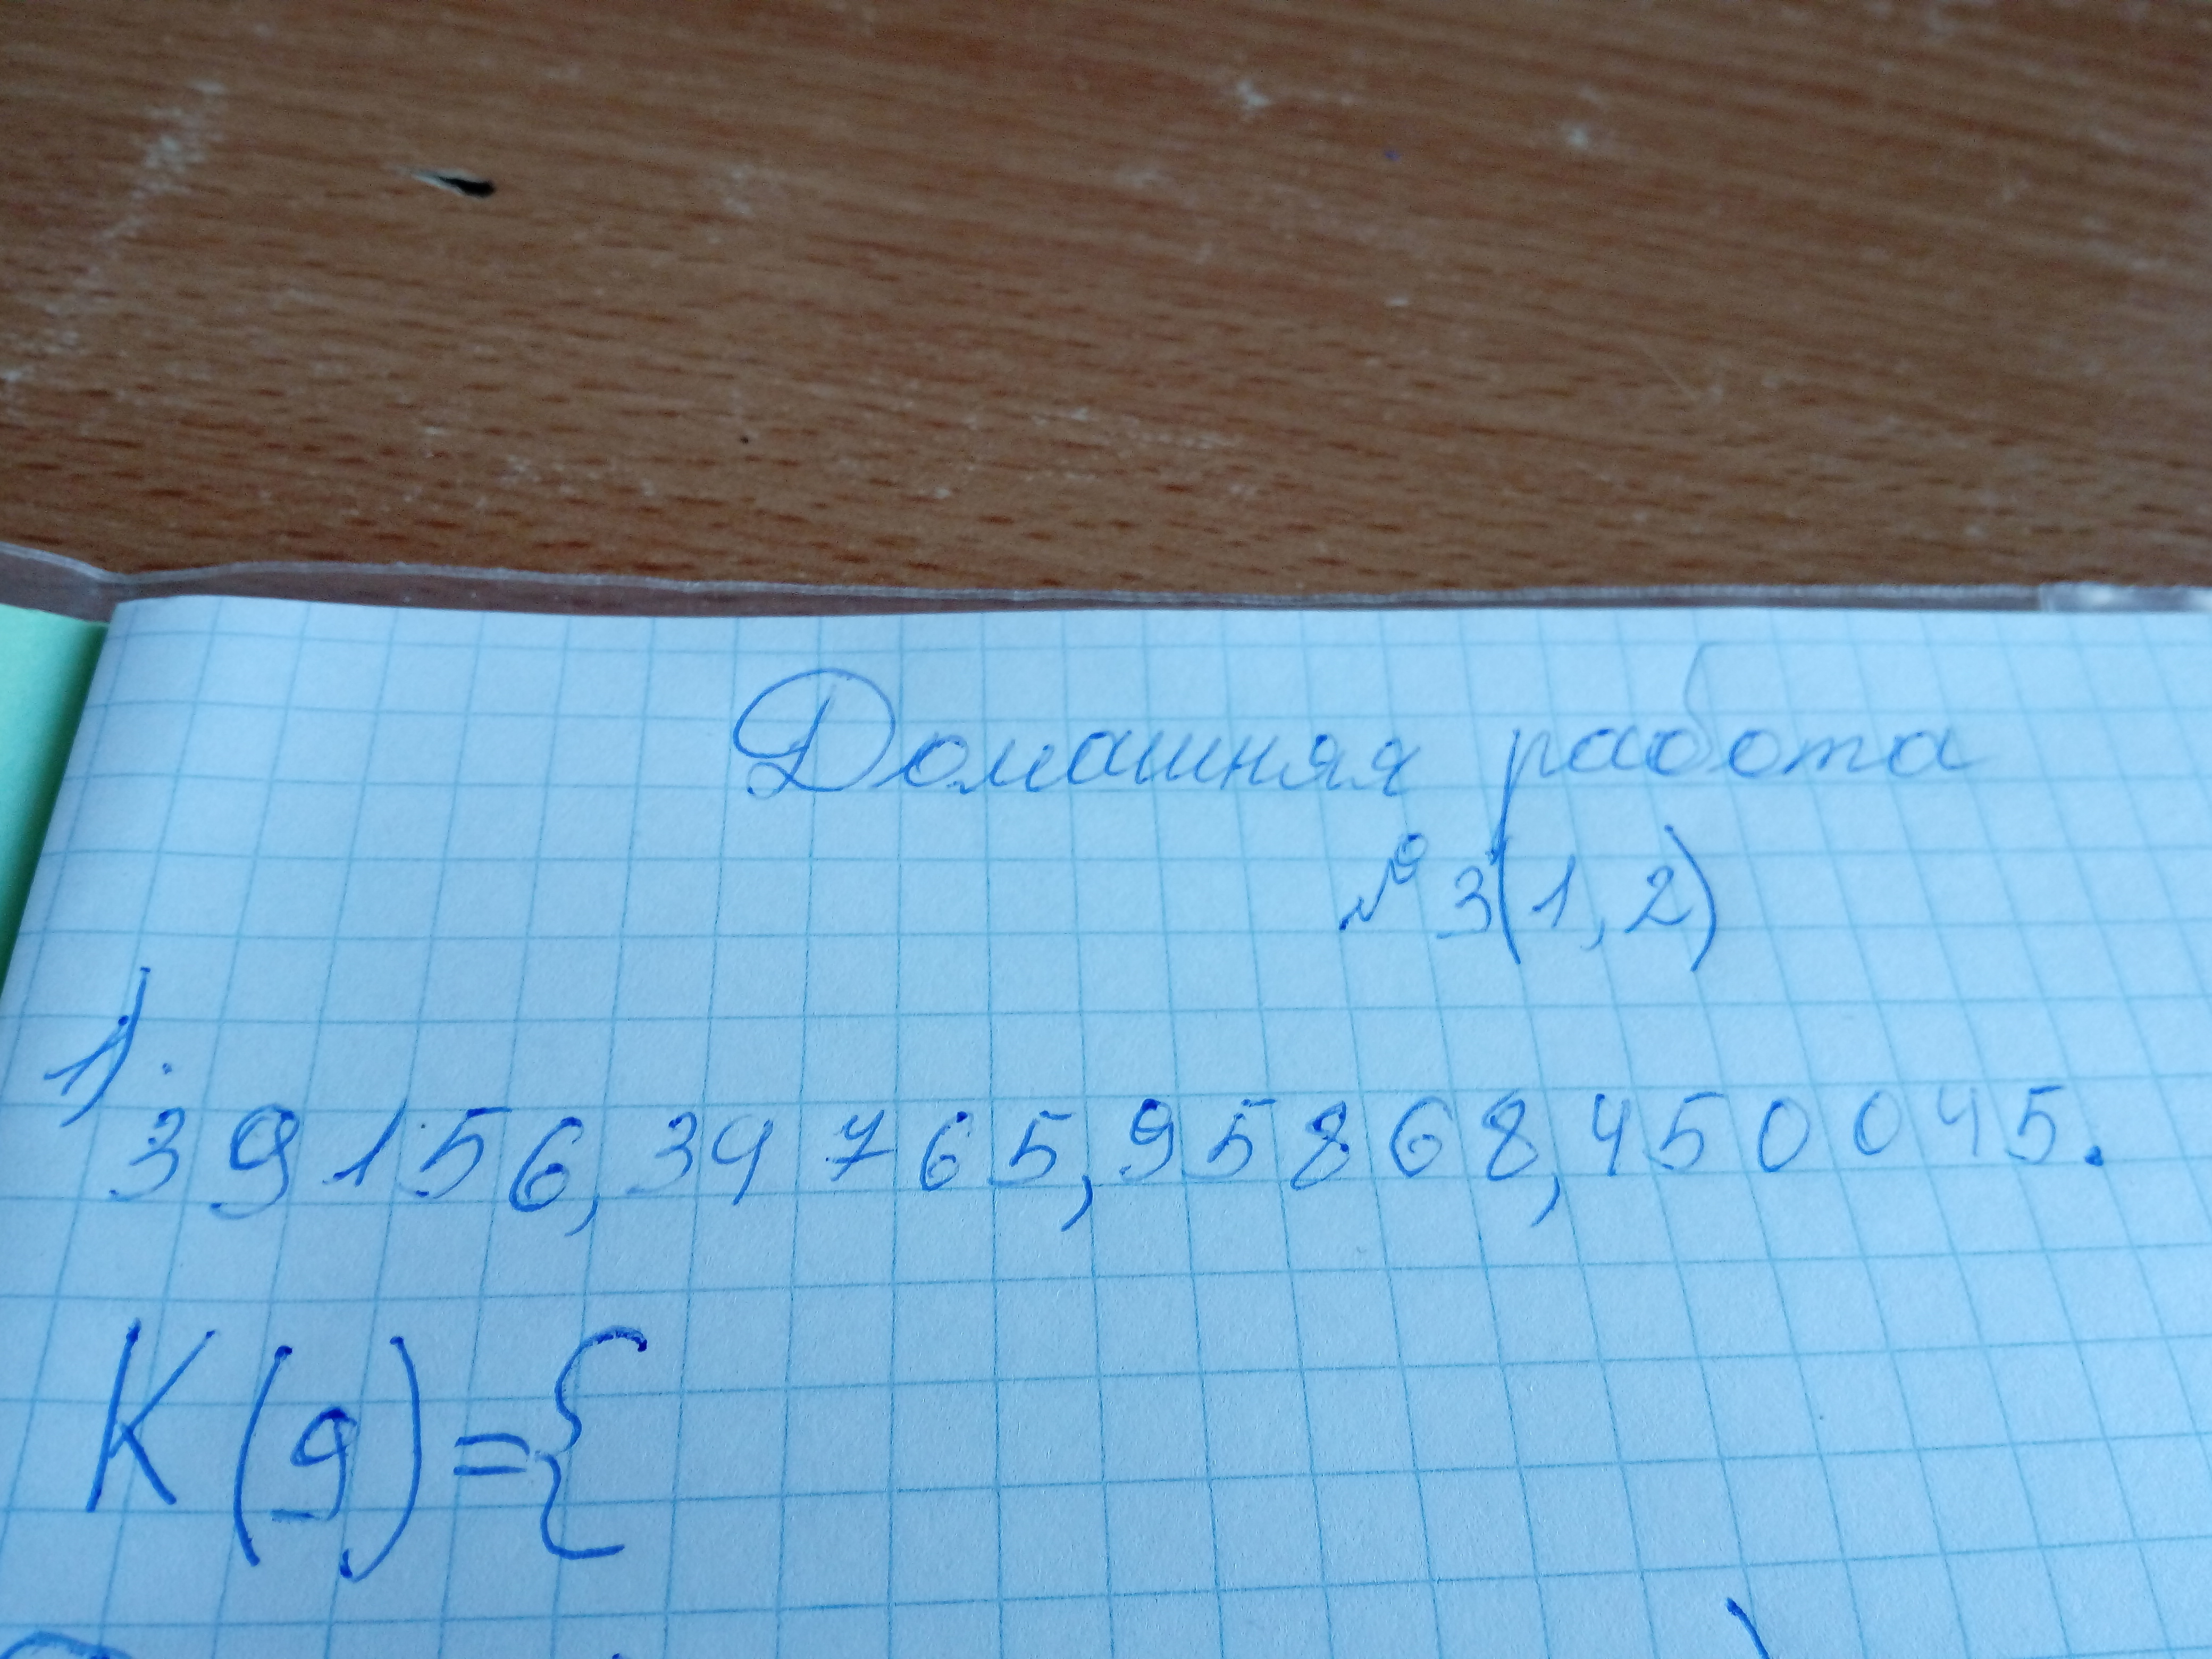 Домашняя работа
№ 3(1, 2)
1).
39156, 34765, 95868, 450045.
K(9)={